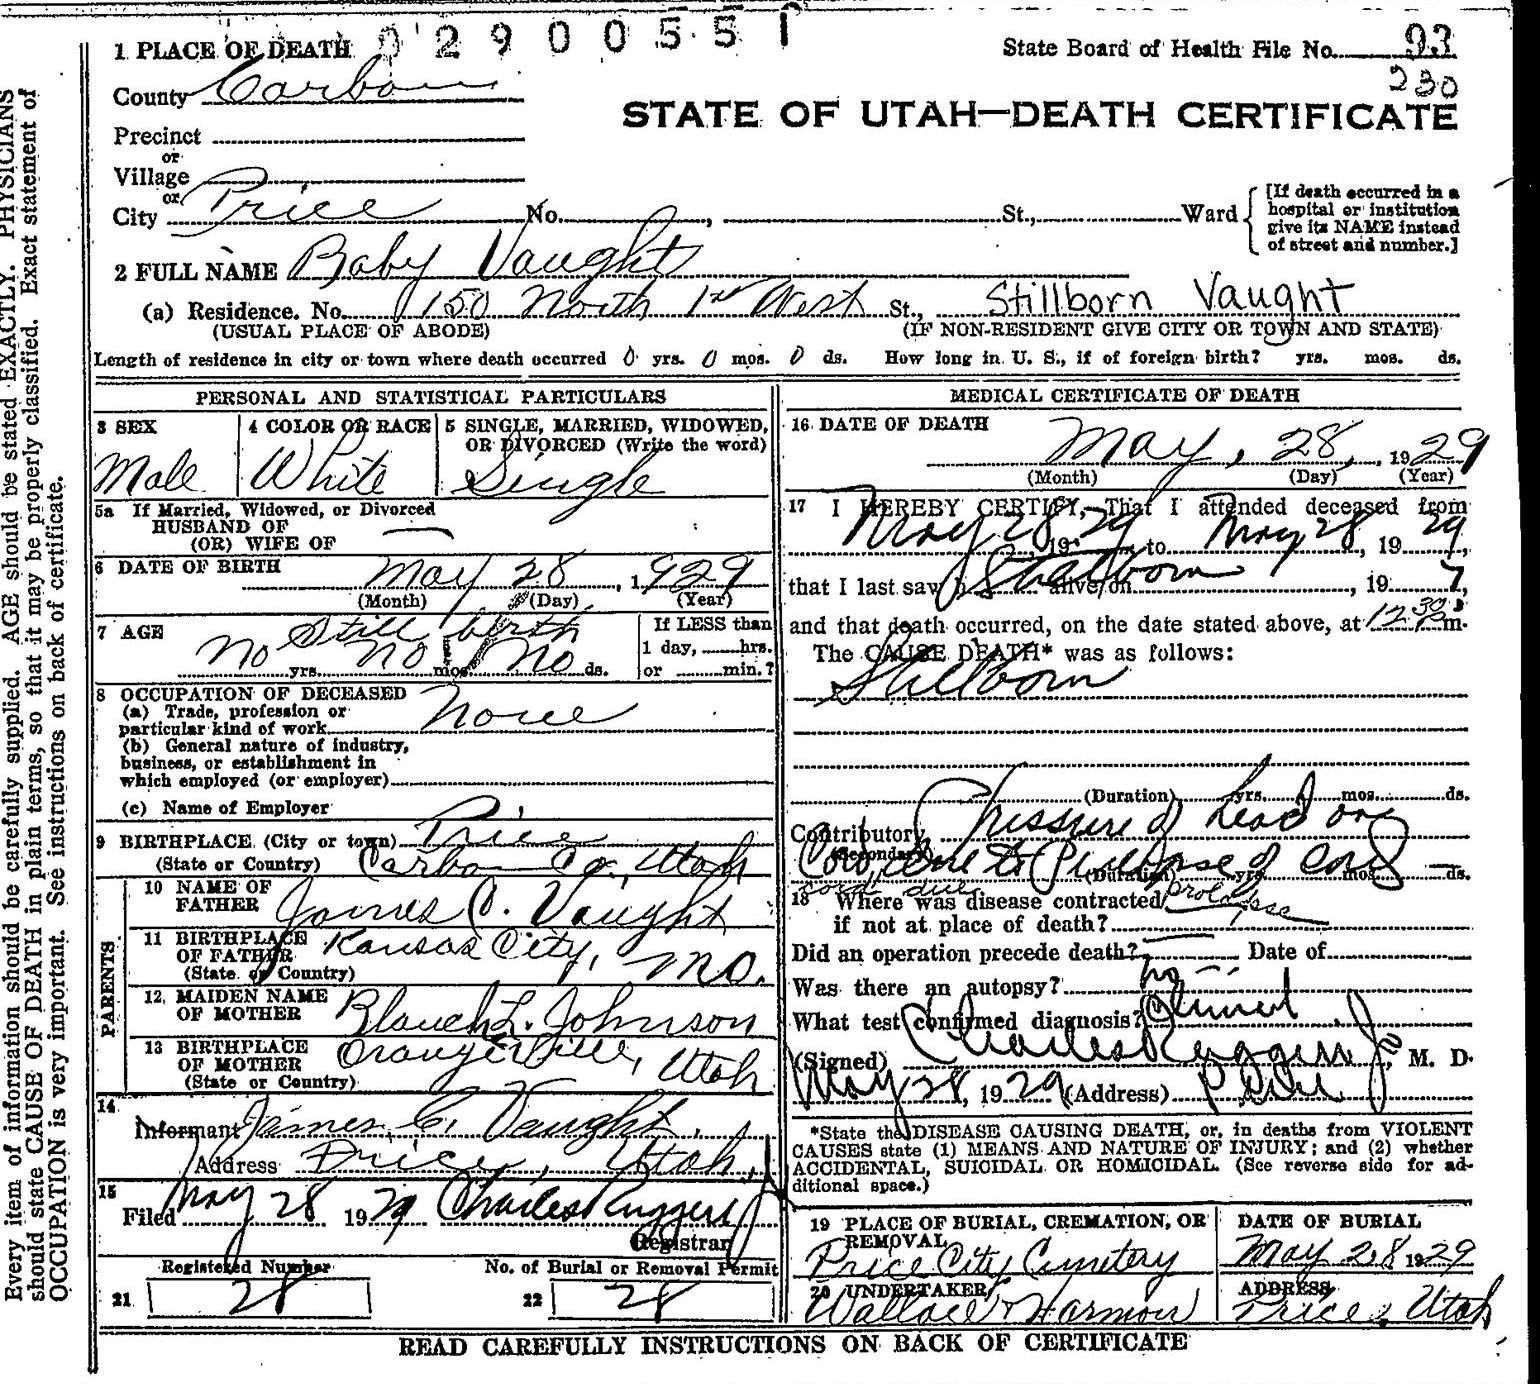 02900551
1 PLACE OF DEATH
State Board of Health File No. 93
230
County Carbon
STATE OF UTAH—DEATH CERTIFICATE
Precinct
or
Village
or
City Price No. , St., Ward
[If death occurred in a hospital or institution give its NAME instead of street and number.]
2 FULL NAME Baby Vaught
(a) Residence. No. 150 North 1st West St., Stillborn Vaught
(USUAL PLACE OF ABODE) (IF NON-RESIDENT GIVE CITY OR TOWN AND STATE)
Length of residence in city or town where death occurred 0 yrs. 0 mos. 0 ds. How long in U. S., if of foreign birth? yrs. mos. ds.
PERSONAL AND STATISTICAL PARTICULARS
3 SEX
Male
4 COLOR OR RACE
White
5 SINGLE, MARRIED, WIDOWED,
OR DIVORCED (Write the word)
Single
5a If Married, Widowed, or Divorced
HUSBAND OF
(OR) WIFE OF —
6 DATE OF BIRTH May 28, 1929
(Month) (Day) (Year)
7 AGE Still birth
No yrs. No mos. No ds.
If LESS than
1 day, hrs.
or min.?
8 OCCUPATION OF DECEASED
(a) Trade, profession or
particular kind of work None
(b) General nature of industry,
business, or establishment in
which employed (or employer)
(c) Name of Employer
9 BIRTHPLACE (City or town) Price
(State or Country) Carbon Co., Utah
PARENTS
10 NAME OF
FATHER James C. Vaught
11 BIRTHPLACE
OF FATHER
(State or Country) Kansas City, Mo.
12 MAIDEN NAME
OF MOTHER Blanch L. Johnson
13 BIRTHPLACE
OF MOTHER
(State or Country) Orangeville, Utah
14
Informant James C. Vaught
Address Price, Utah
15
Filed May 28 1929 Charles Ruggeri Jr
Registrar
Registered Number
21 28
No. of Burial or Removal Permit
22 28
MEDICAL CERTIFICATE OF DEATH
16 DATE OF DEATH
May, 28, 1929
(Month) (Day) (Year)
17 I HEREBY CERTIFY, That I attended deceased from
May 28, 29, 19 to May 28, 1929,
that I last saw h alive on Stillborn, 19
and that death occurred, on the date stated above, at 12 30 m.
The CAUSE DEATH* was as follows:
Stillborn
(Duration) yrs. mos. ds.
Contributory Pressure of head on
(Secondary) Cord due to Prolapse of Cord
(Duration) yrs. mos. — ds.
cord due prolapse
18 Where was disease contracted
if not at place of death?
Did an operation precede death? — Date of
Was there an autopsy? No
What test confirmed diagnosis? Clinical
(Signed) Charles Ruggeri Jr, M. D.
May 28, 1929 (Address) Price
*State the DISEASE CAUSING DEATH, or, in deaths from VIOLENT
CAUSES state (1) MEANS AND NATURE OF INJURY; and (2) whether
ACCIDENTAL, SUICIDAL OR HOMICIDAL. (See reverse side for ad-
ditional space.)
19 PLACE OF BURIAL, CREMATION, OR
REMOVAL
Price City Cemetery
DATE OF BURIAL
May 28 1929
20 UNDERTAKER
Wallace & Harmon
ADDRESS
Price, Utah
READ CAREFULLY INSTRUCTIONS ON BACK OF CERTIFICATE
Every item of information should be carefully supplied. AGE should be stated EXACTLY. PHYSICIANS
should state CAUSE OF DEATH in plain terms, so that it may be properly classified. Exact statement of
OCCUPATION is very important. See instructions on back of certificate.